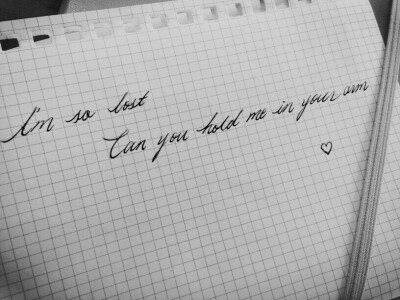 I'm so lost
Can you hold me in your arm
♡